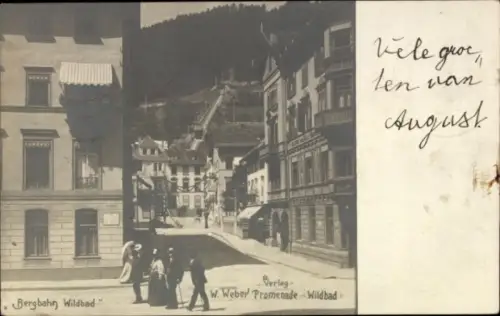 Vele groe-
ten van
August
"Bergbahn Wildbad"
Verlag
W. Weber Promenade - Wildbad